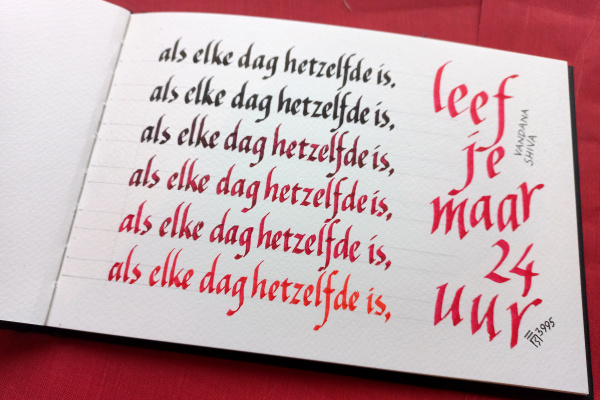 als elke dag hetzelfde is.
als elke dag hetzelfde is,
als elke dag hetzelfde is,
als elke dag hetzelfde is,
als elke dag hetzelfde is,
als elke dag hetzelfde is,
leef
je
maar
24
uur
VANDANA
SHIVA
3995